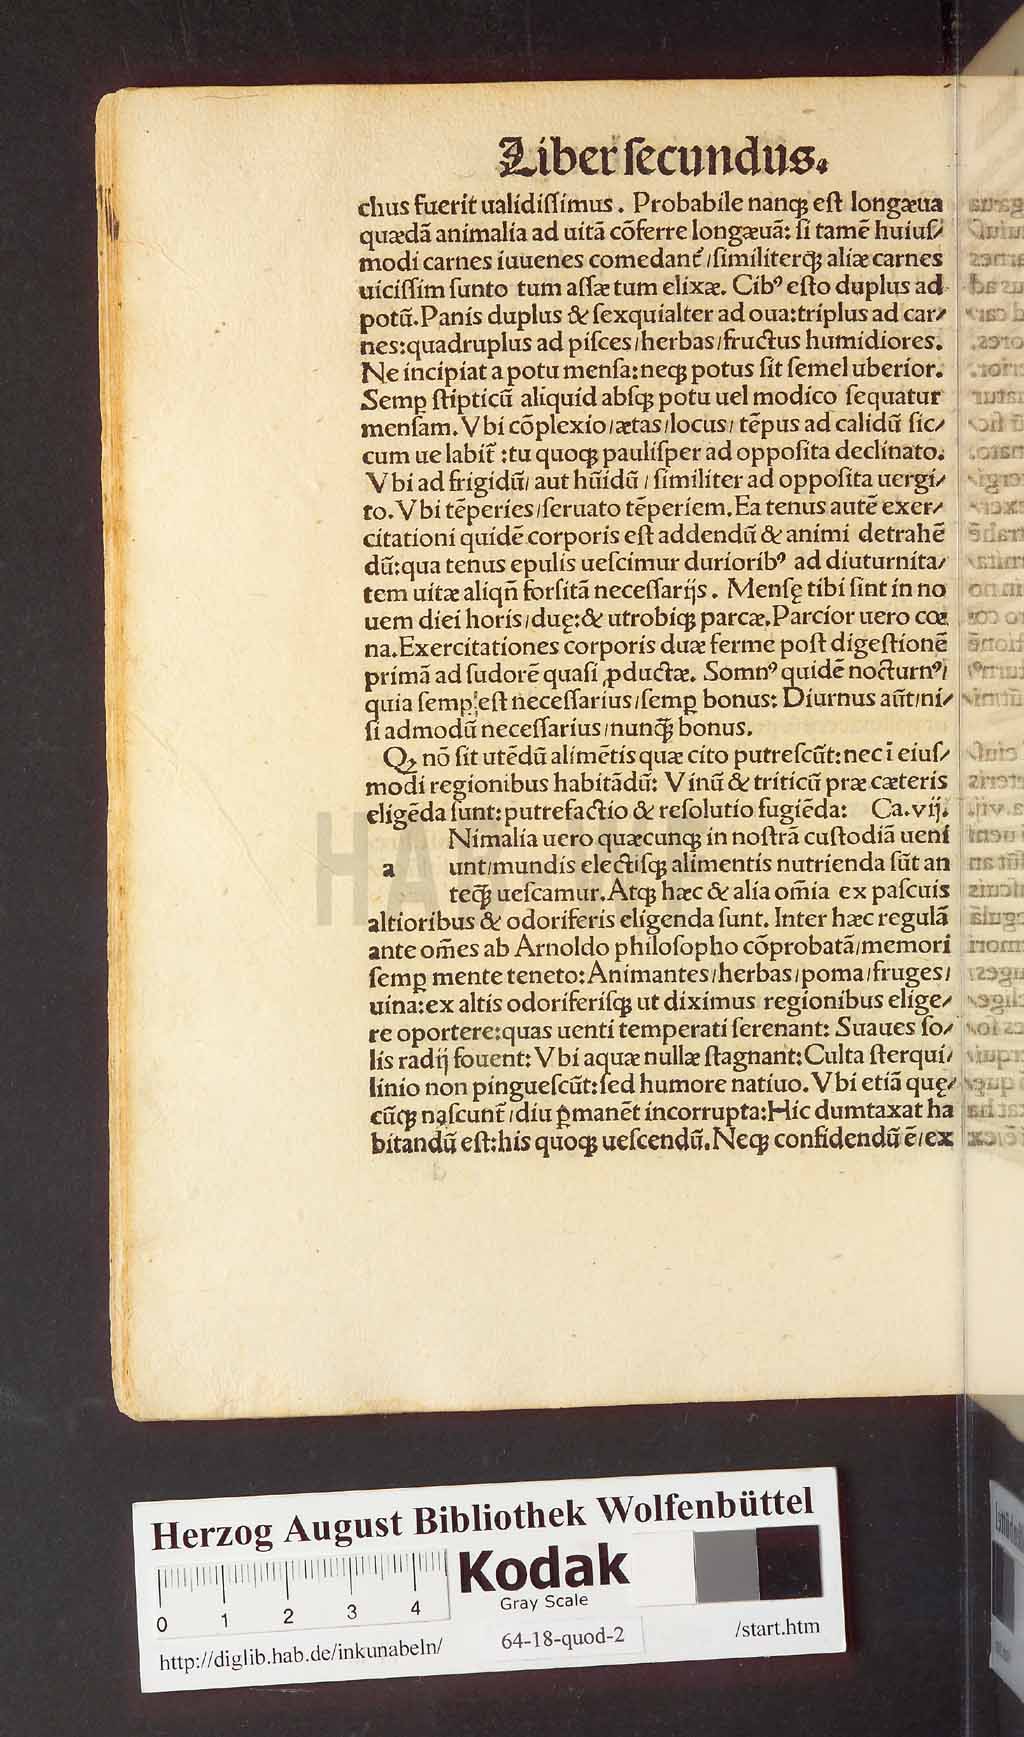 Liber ſecundus.
chus fuerit ualidiſſimus. Probabile nanqꝫ eſt longæua
quædã animalia ad uitã cõferre longæuã: ſi tamẽ huiuſ/
modi carnes iuuenes comedant᷑/ſimiliterqꝫ aliæ carnes
uiciſſim ſunto tum aſſæ tum elixæ. Cibꝰ eſto duplus ad
potũ. Panis duplus & ſexquialter ad oua: triplus ad car/
nes: quadruplus ad piſces/herbas/fructus humidiores.
Ne incipiat a potu menſa: neqꝫ potus ſit ſemel uberior.
Semꝑ ſtipticũ aliquid abſqꝫ potu uel modico ſequatur
menſam. Vbi cõplexio/ætas/locus/tẽpus ad calidũ ſic/
cum ue labit᷑ :tu quoqꝫ pauliſper ad oppoſita declinato.
Vbi ad frigidũ/ aut hũidũ / ſimiliter ad oppoſita uergi/
to. Vbi tẽperies/ſeruato tẽperiem. Ea tenus autẽ exer/
citationi quidẽ corporis eſt addendũ & animi detrahẽ
dũ: qua tenus epulis ueſcimur durioribꝰ ad diuturnita/
tem uitæ aliqñ forſitã neceſſarijs. Menſę tibi ſint in no
uem diei horis/duę: & utrobiqꝫ parcæ. Parcior uero cœ
na. Exercitationes corporis duæ ferme poſt digeſtionẽ
primã ad ſudorẽ quaſi ꝓductæ. Somnꝰ quidẽ nocturnꝰ/
quia ſemꝑ eſt neceſſarius/ſemꝑ bonus: Diurnus aũt/ni/
ſi admodũ neceſſarius/nunqꝫ̃ bonus.
Qꝫ nõ ſit utẽdũ alimẽtis quæ cito putreſcũt: nec ĩ eiuſ/
modi regionibus habitãdũ: Vinũ & triticũ præ cæteris
eligẽda ſunt: putrefactio & reſolutio fugiẽda: Ca. vij.
Nimalia uero quæcunqꝫ in noſtrã cuſtodiã ueni
a unt/mundis electiſqꝫ alimentis nutrienda ſũt an
teqꝫ̃ ueſcamur. Atqꝫ hæc & alia om̃ia ex paſcuis
altioribus & odoriferis eligenda ſunt. Inter hæc regulã
ante om̃es ab Arnoldo philoſopho cõprobatã/memori
ſemꝑ mente teneto: Animantes/herbas/poma/fruges/
uina: ex altis odoriferiſqꝫ ut diximus regionibus elige/
re oportere: quas uenti temperati ſerenant: Suaues ſo/
lis radij fouent: Vbi aquæ nullæ ſtagnant: Culta ſterqui/
linio non pingueſcũt: ſed humore natiuo. Vbi etiã quę/
cũqꝫ naſcunt᷑/diu ꝑmanẽt incorrupta: Hic dumtaxat ha
bitandũ eſt: his quoqꝫ ueſcendũ. Neqꝫ confidendũ ẽ/ex
HAB
Herzog August Bibliothek Wolfenbüttel
Kodak
Gray Scale
0 1 2 3 4
http://diglib.hab.de/inkunabeln/
64-18-quod-2
/start.htm